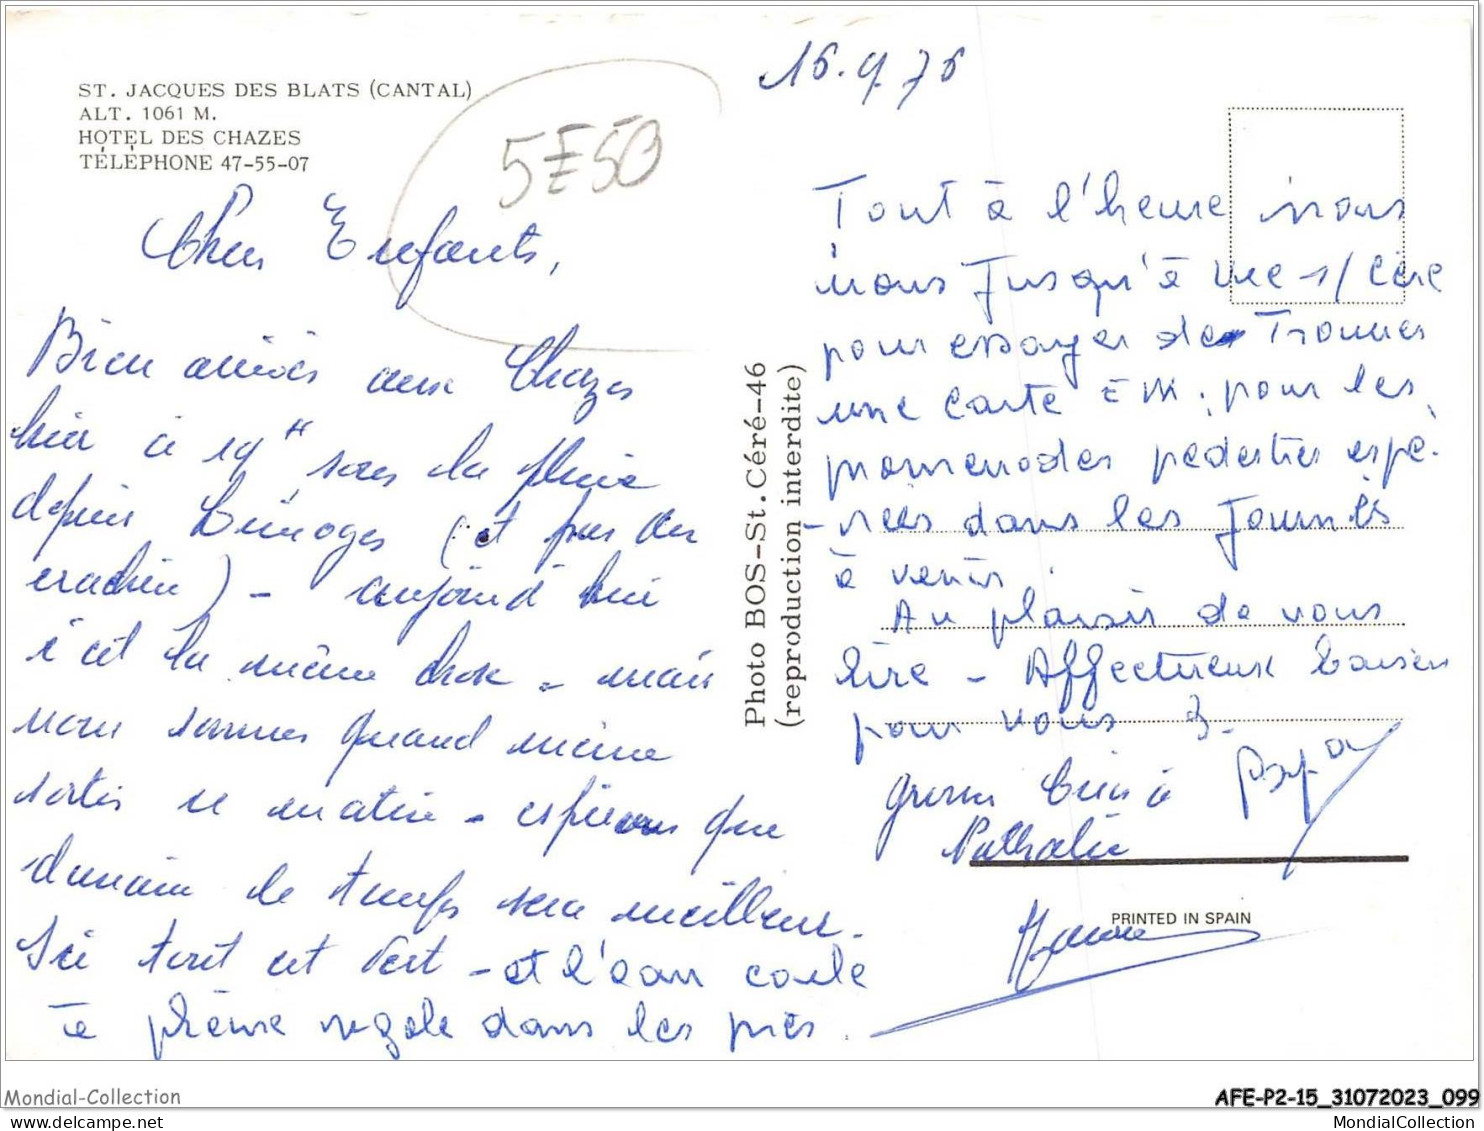 ST. JACQUES DES BLATS (CANTAL)
ALT. 1061 M.
HOTEL DES CHAZES
TÉLÉPHONE 47-55-07
5E50
Chers Enfants,
Bien arrivés aux Chazes
hier à 19H sous la pluie
depuis Limoges (et pas du
crachin) - aujourd'hui
c'est la même chose - mais
nous sommes quand même
sortis ce matin - espérons que
demain le temps sera meilleur.
Ici tout est Vert - et l'eau coule
à pleine rigole dans les prés.
Photo BOS-St. Céré-46
(reproduction interdite)
16.9.76
Tout à l'heure nous
nous Jusqu'à Vic s/ Cère
pour essayer de Trouver
une carte EM. pour les
promenades pédestres espé-
-rées dans les Journées
à venir.
Au plaisir de vous
lire - Affectueux baisers
pour vous 3.
Papy
Nathalie
PRINTED IN SPAIN
Mondial-Collection
AFE-P2-15_31072023_099
www.mondialcollection.net
MondialCollection